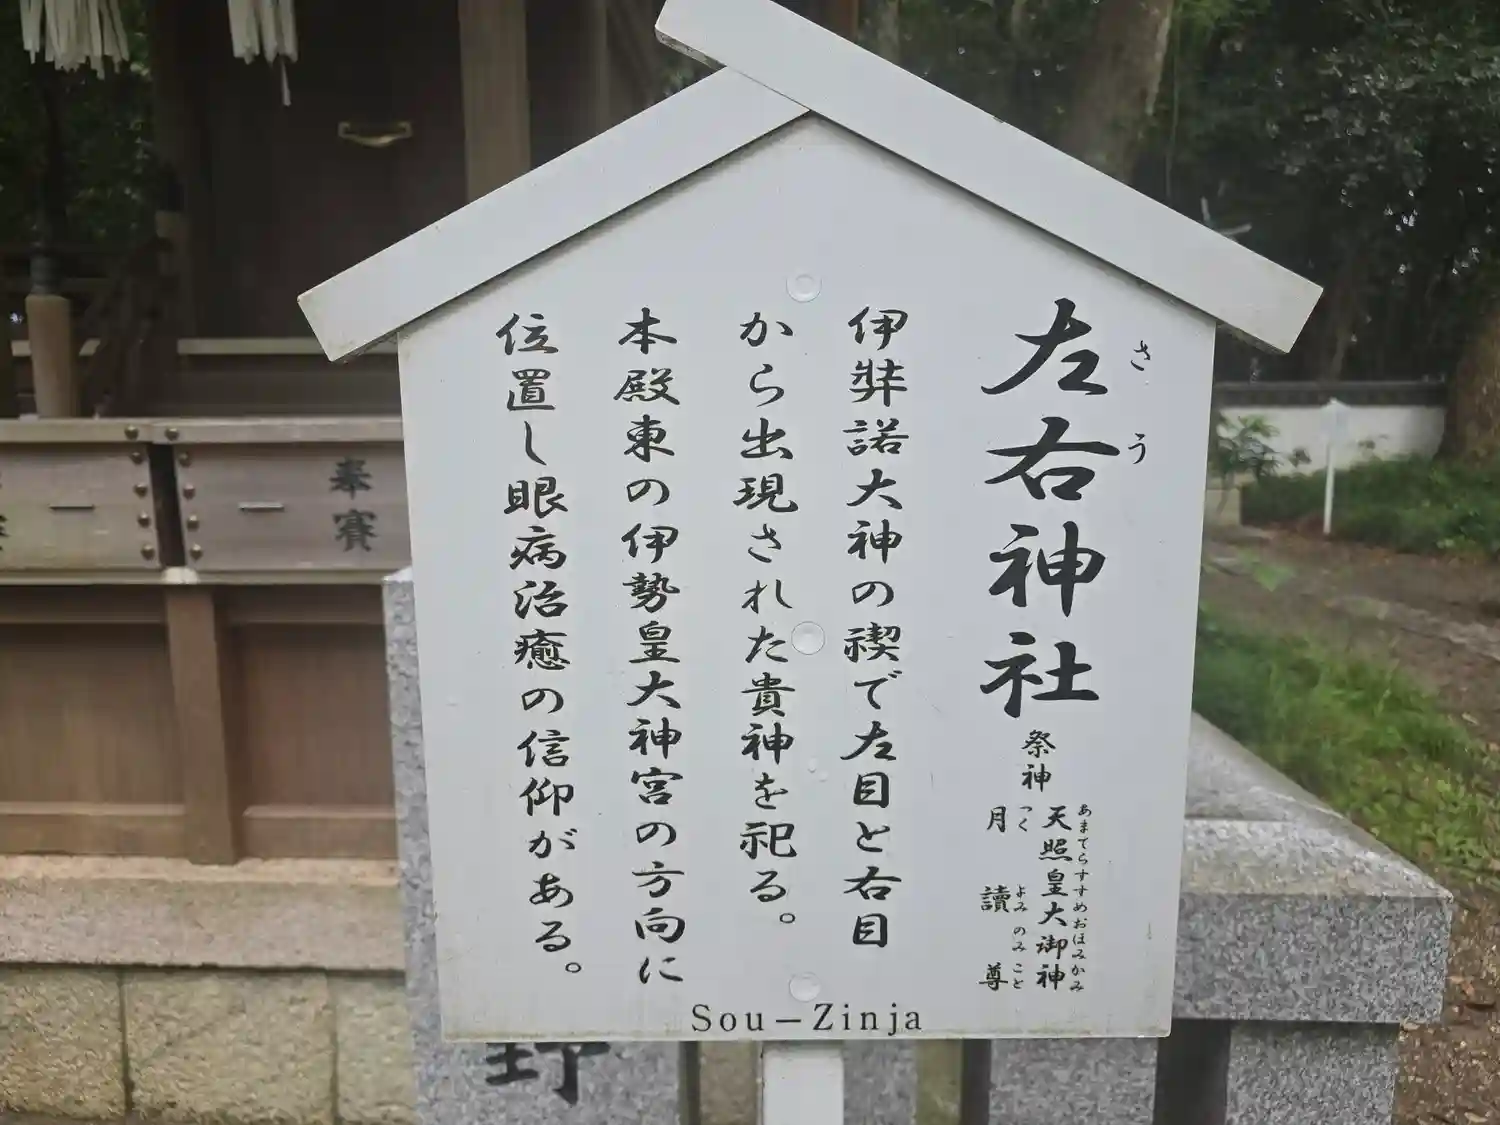 左右神社
さう
祭神
天照皇大御神
あまてらすすめおほみかみ
月讀尊
つくよみのみこと
伊弉諾大神の禊で左目と右目
から出現された貴神を祀る。
本殿東の伊勢皇大神宮の方向に
位置し眼病治癒の信仰がある。
Sou－Zinja
奉賽
野